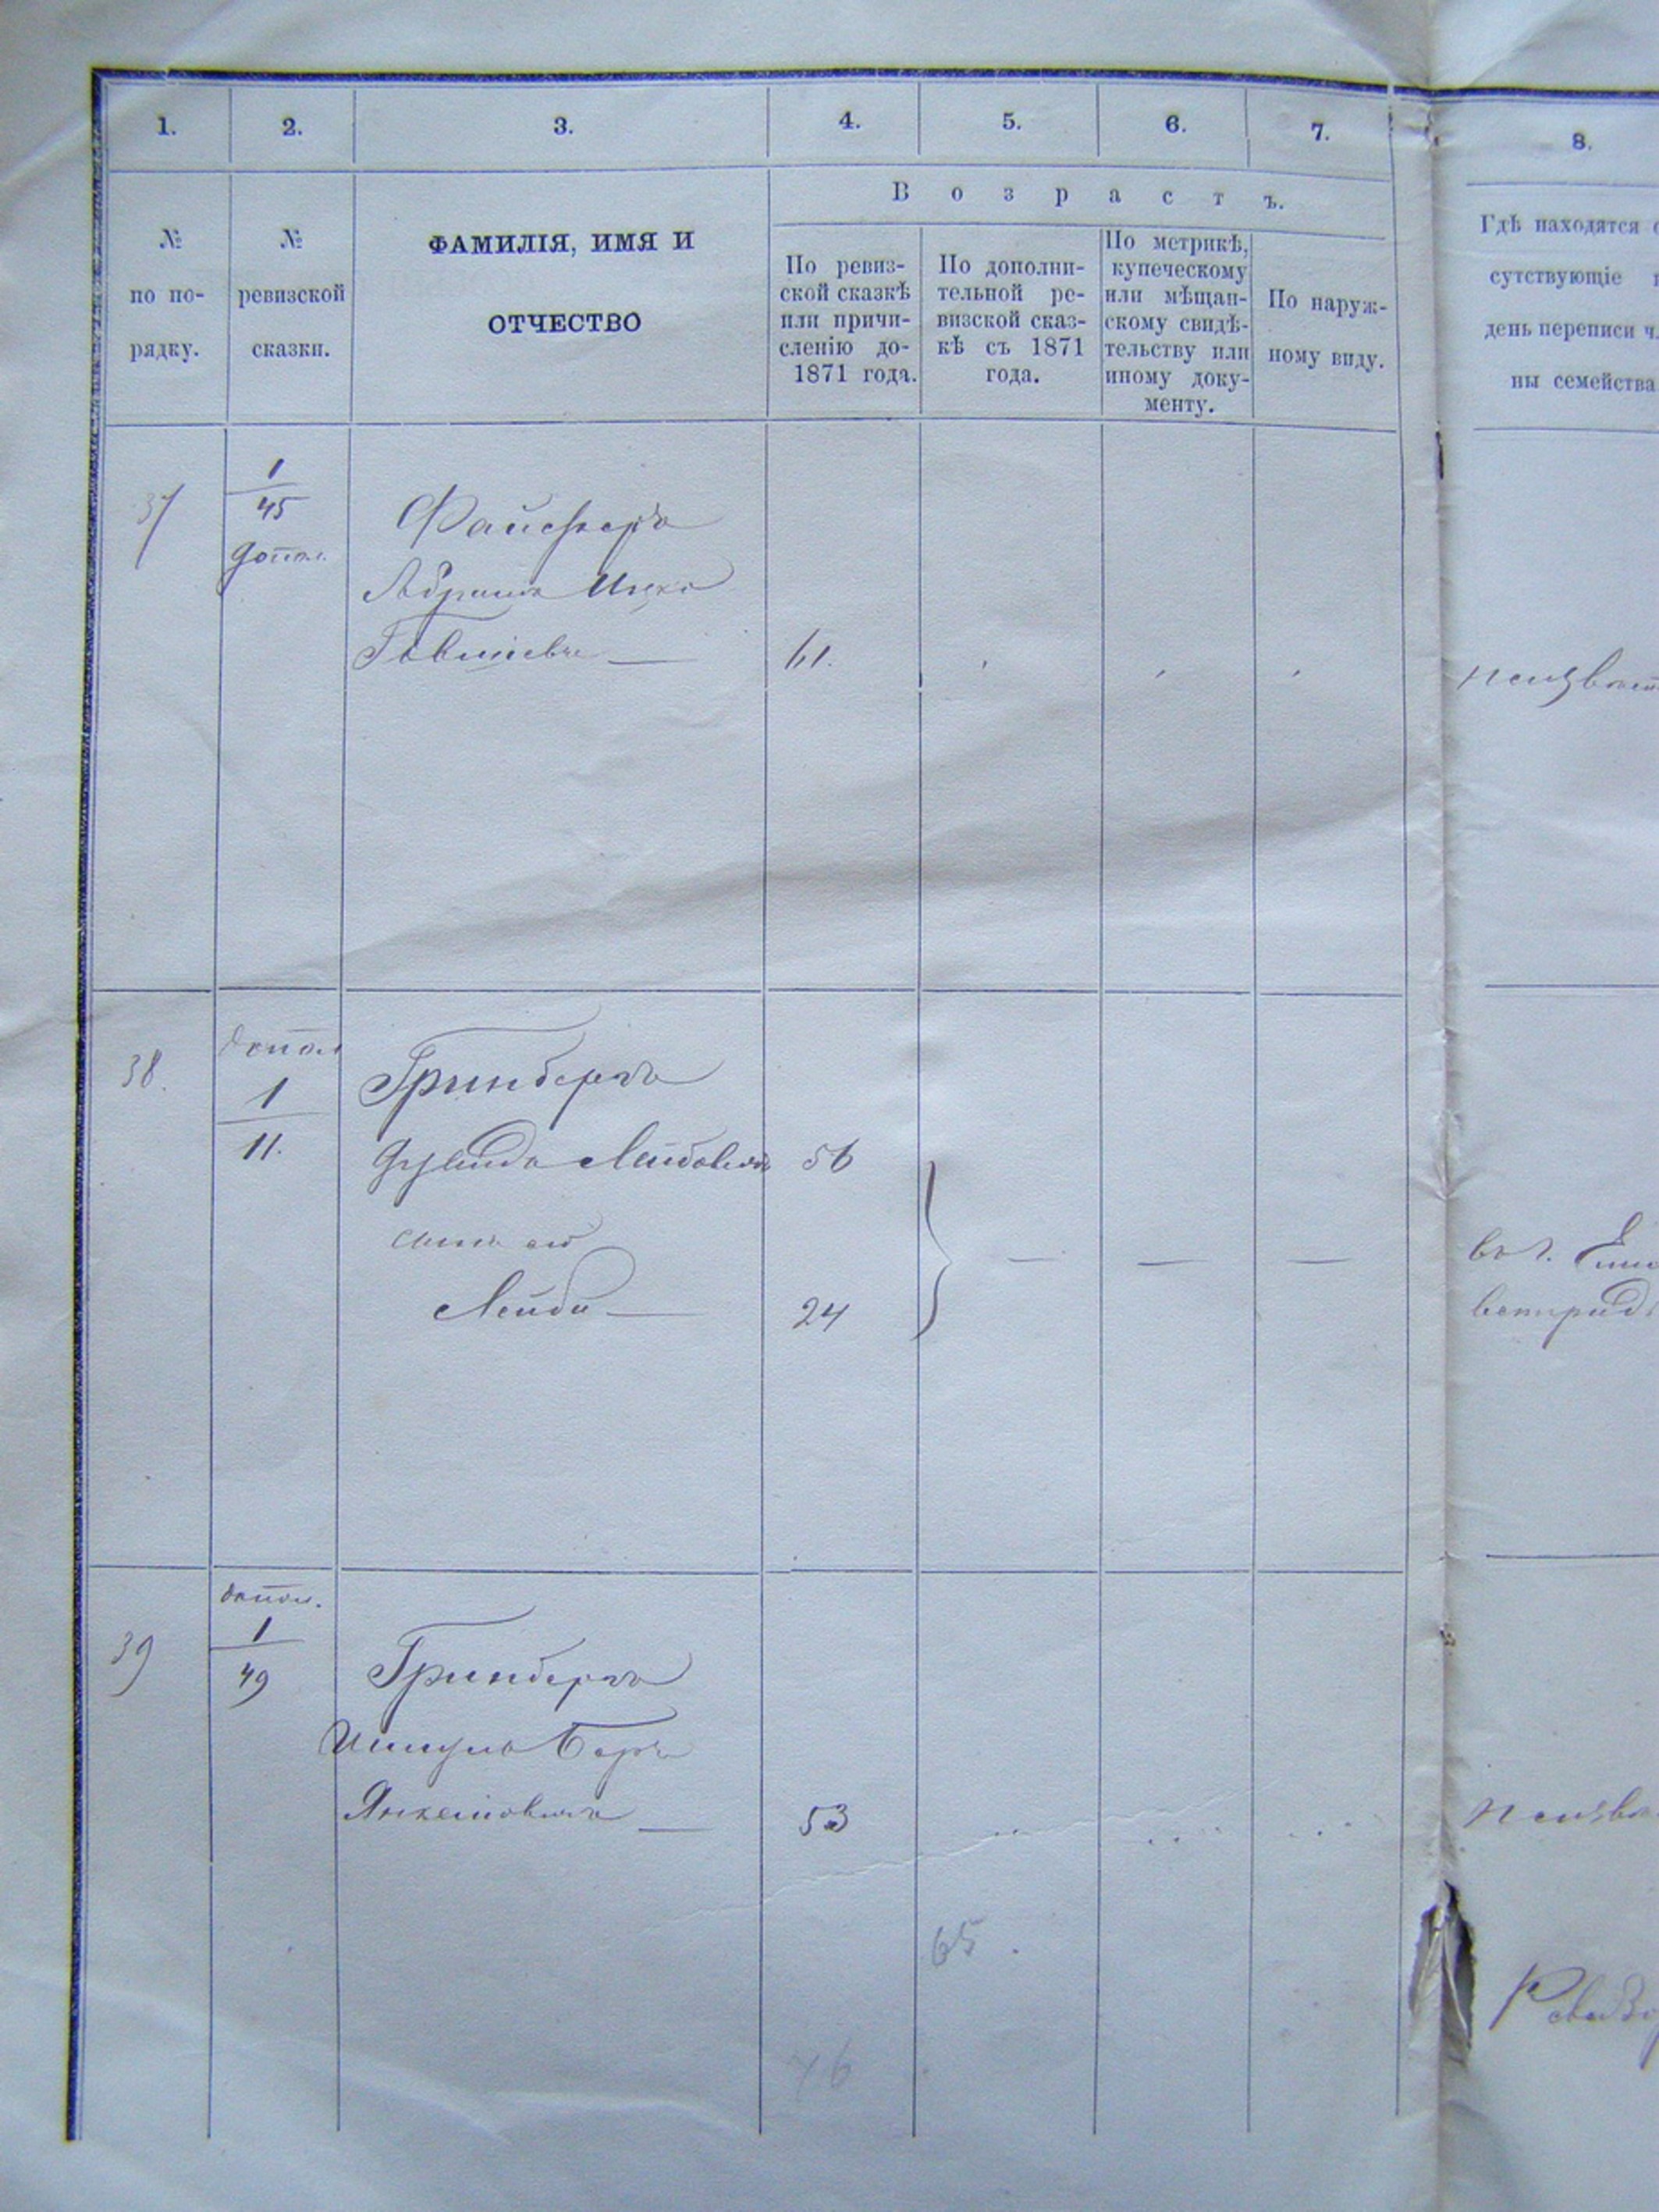 1. 2. 3. 4. 5. 6. 7. 8.
№
по по-
рядку.
№
ревизской
сказки.
ФАМИЛІЯ, ИМЯ И
ОТЧЕСТВО
Возрастъ.
По ревиз-
ской сказкѣ
или причи-
сленію до-
1871 года.
По дополни-
тельной ре-
визской сказ-
кѣ съ 1871
года.
По метрикѣ,
купеческому
или мѣщан-
скому свидѣ-
тельству или
иному доку-
менту.
По наруж-
ному виду.
Гдѣ находятся
сутствующіе
день переписи
ны семейства
37
1
45
допол.
Файферъ
Абрамъ
61.
38.
допол
1
11.
Гринбергъ
Лейбовичъ 56
сынъ его
Лейба 24
въ г.
39
допол.
1
49
Гринбергъ
Беръ
Янкелевичъ 53
65.
76